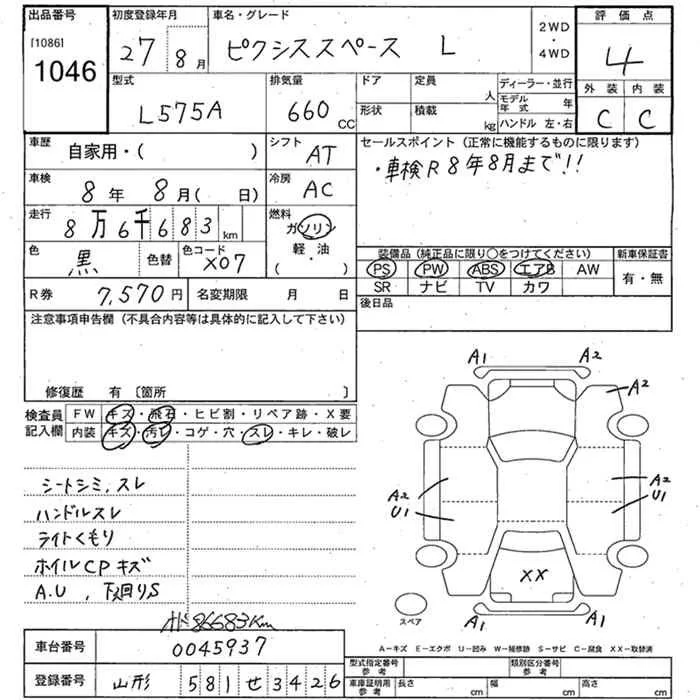 出品番号
[1086]
1046
初度登録年月
27 8月
車名・グレード
ピクシススペース L
2WD
・
4WD
評価点
4
外装 内装
C C
型式
L575A
排気量
660 CC
ドア 定員 人
形状 積載 kg
ディーラー・並行
モデル年式 年
ハンドル 左・右
車歴
自家用・( )
シフト
AT
セールスポイント(正常に機能するものに限ります)
・車検R8年8月まで!!
車検
8年 8月( 日)
冷房
AC
走行
8万6千683km
燃料
ガソリン
軽・油
( ・ )
色
黒
色替
色コード
X07
装備品(純正品に限り○をつけてください)
新車保証書
PS PW ABS エアB AW
有・無
SR ナビ TV カワ
R券 7,570円
名変期限 月 日
後日品
注意事項申告欄(不具合内容等は具体的に記入して下さい)
修復歴 有〔箇所 〕
検査員
記入欄
FW キズ・飛石・ヒビ割・リペア跡・X要
内装 キズ・汚レ・コゲ・穴・スレ・キレ・破レ
シートシミ,スレ
ハンドルスレ
ライトくもり
ホイルCPキズ
A.U,下廻りS
86683Km
車台番号
0045937
登録番号
山形 581 せ 3426
A1 A2
A2
A2
U1
A2
U1
XX
A1 A1
スペア
A-キズ E-エクボ U-凹み W-補修跡 S-サビ C-腐食 XX-取替済
型式指定番号
参考
類別区分番号
参考
車庫証明用
参考
長さ cm
幅 cm
高さ cm